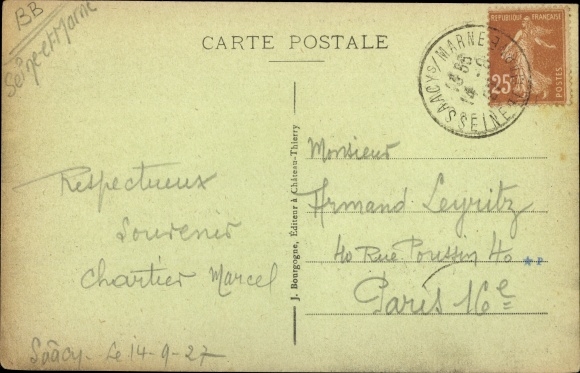 BB
Seine-et-Marne
CARTE POSTALE
REPUBLIQUE FRANÇAISE
25c
POSTES
SAACY S/ MARNE
SEINE
Respectueux
Souvenir
Chartier Marcel
Saâcy - Le 14-9-27
J. Bourgogne, Éditeur à Château-Thierry
Monsieur
Armand Leyritz
40 Rue Poussin 40
Paris 16e